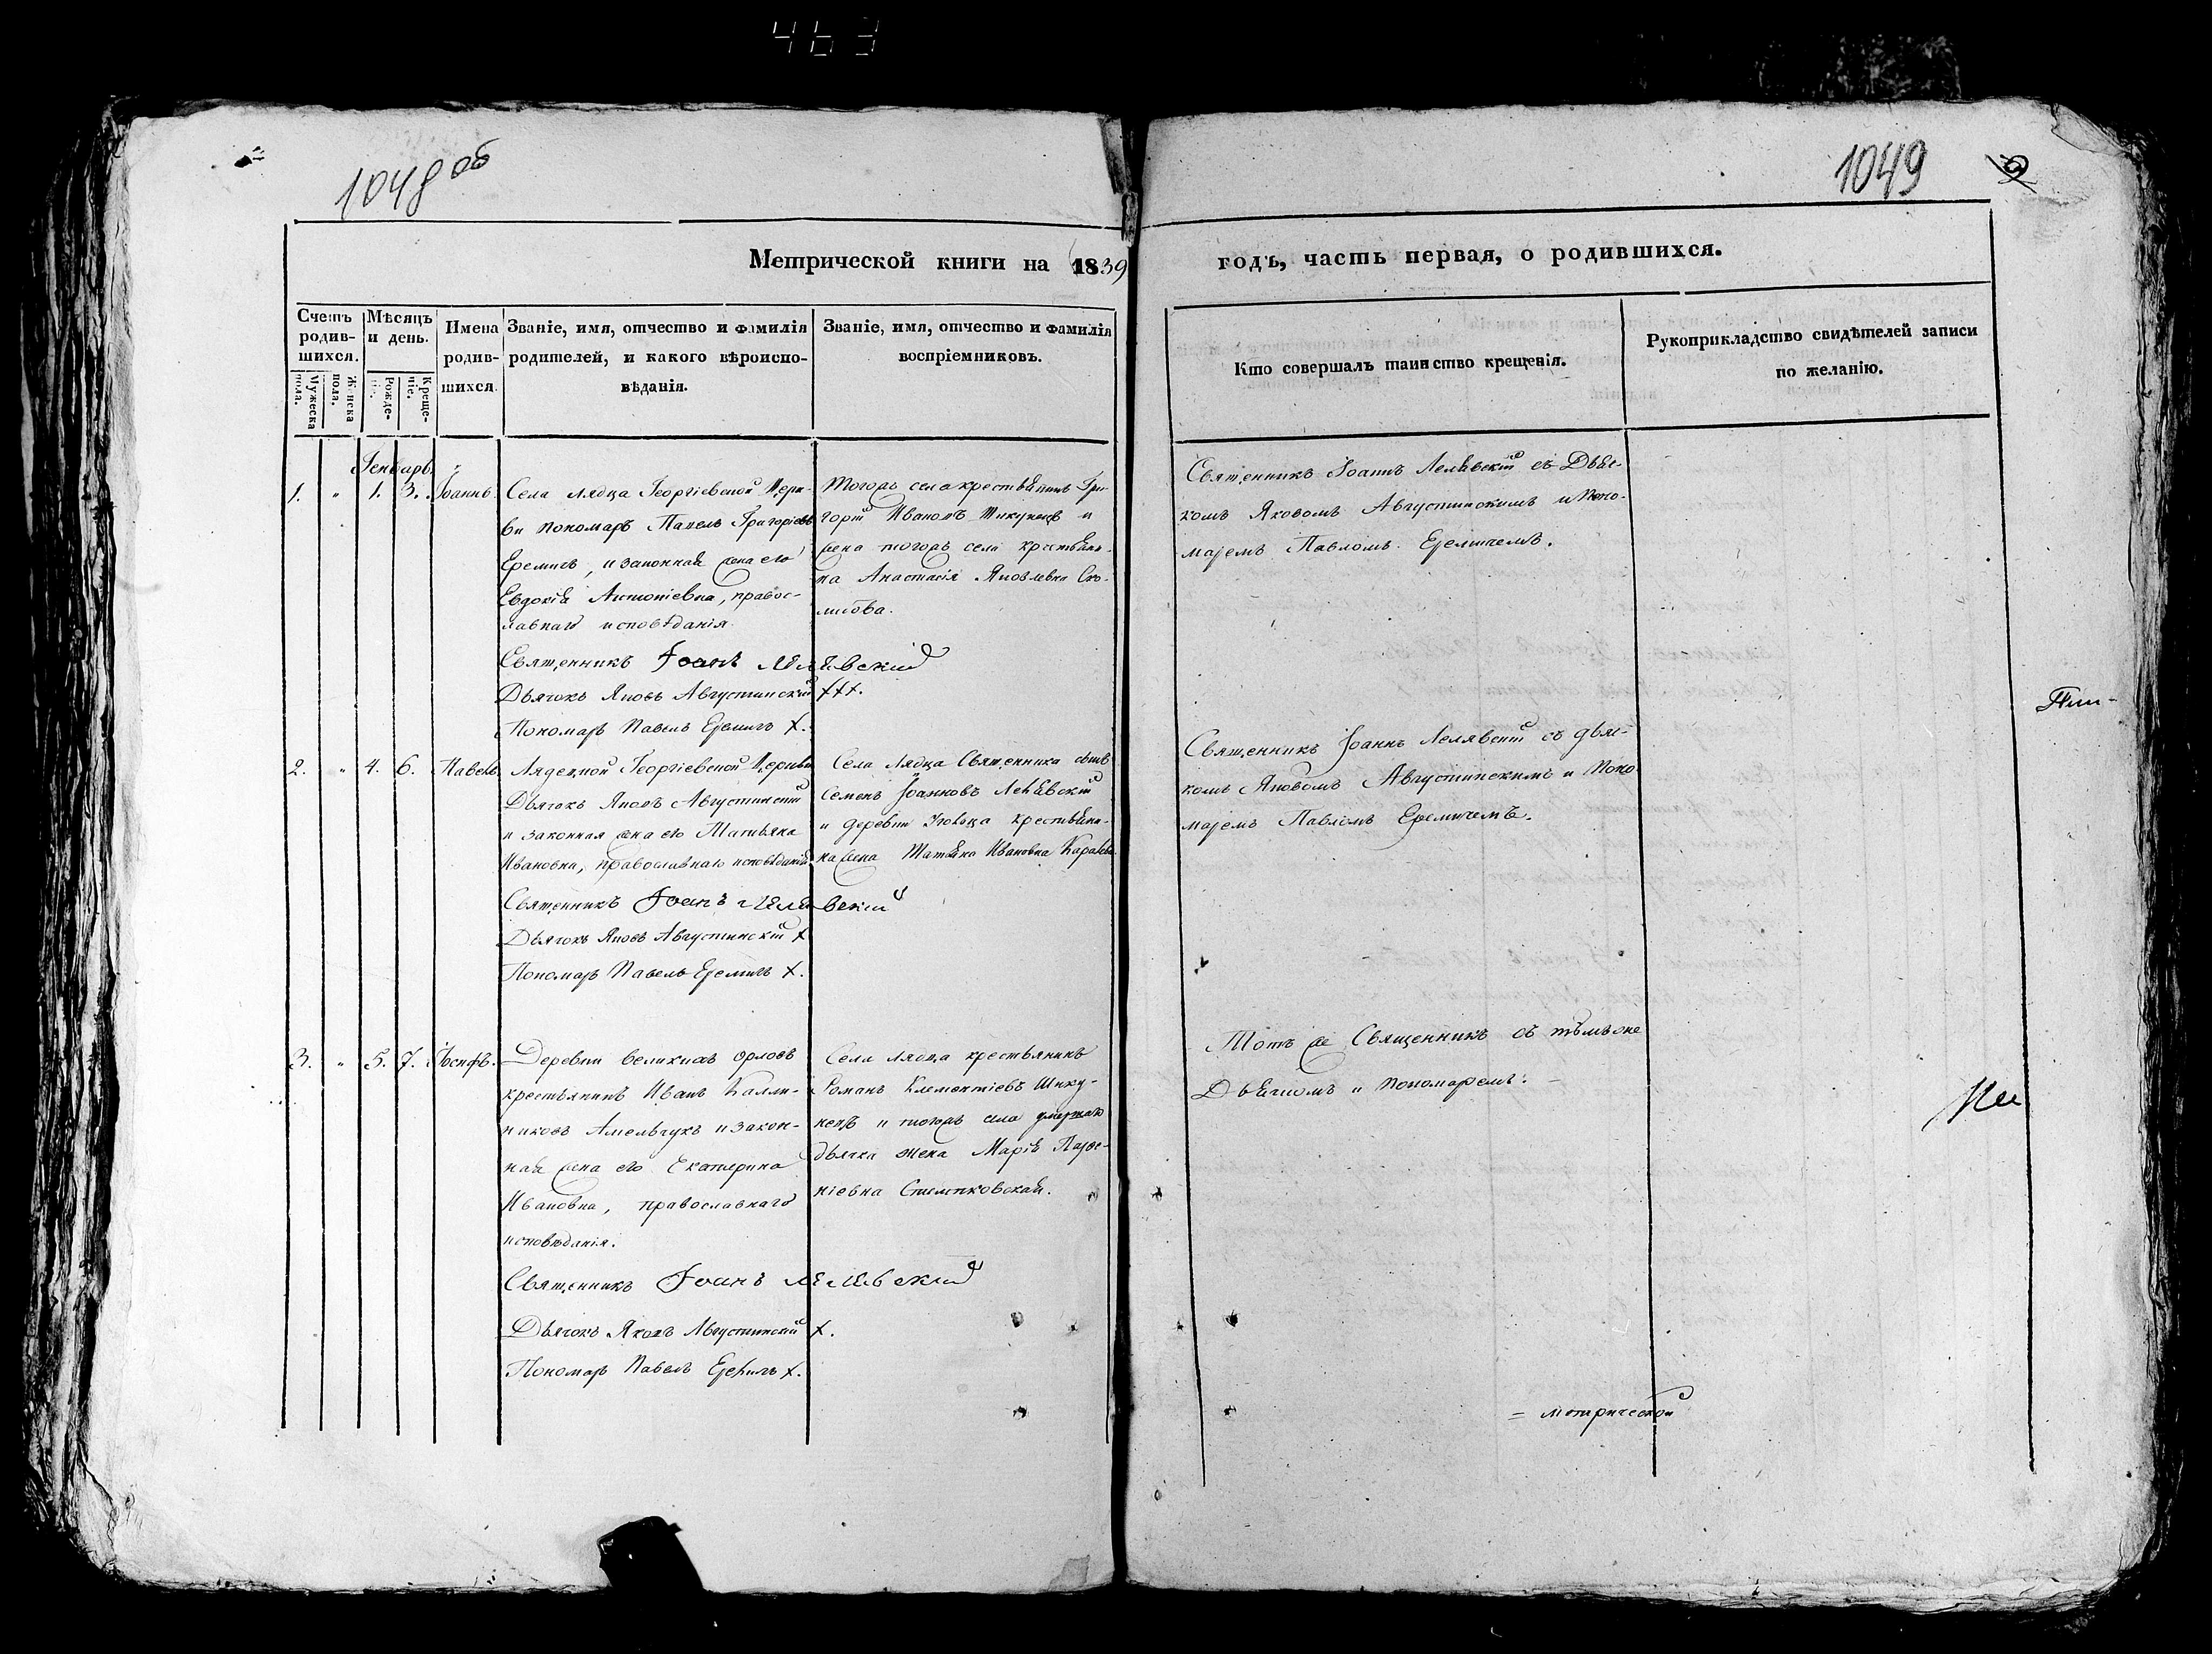 463
1048 об
1049
Метрической книги на 1839
годъ, часть первая, о родившихся.
Счетъ родив-шихся.
Мужеска пола.
Женска пола.
Мѣсяцъ и день.
Рожде-ніе.
Креще-ніе.
Имена родив-шихся.
Званіе, имя, отчество и фамилія
родителей, и какого вѣроиспо-
вѣданія.
Званіе, имя, отчество и фамилія
воспріемниковъ.
Кто совершалъ таинство крещенія.
Рукоприкладство свидѣтелей записи
по желанію.
Генварь
1. " 1. 3. Іоаннъ.
Села Лядца Георгіевской Церк-
ви пономарь Павелъ Григоріевъ
Еремичъ, и законная жена его
Евдокія Антоніевна, правос-
лавнаго исповѣданія.
Священникъ Іоанъ Лелявский
Дьячокъ Яковъ Августинскій +++.
Пономарь Павелъ Еремичъ +.
Тогожъ села крестьянинъ Гри-
горій Ивановъ Шикунецъ и
жена тогожъ села крестьяни-
на Анастасія Яковлевна
Священникъ Іоаннъ Лелявскій съ Дьяч-
комъ Яковомъ Августинскимъ и Поно-
маремъ Павломъ Еремичемъ.
2. " 4. 6. Павелъ.
Лядецкой Георгіевской Церкви
Дьячокъ Яковъ Августинскій
и законная жена его Татьяна
Ивановна, православнаго исповѣданія
Священникъ Іоанъ Лелявский
Дьячокъ Яковъ Августинскій +
Пономарь Павелъ Еремичъ +.
Села Лядца Священника сынъ
Семенъ Іоанновъ Лелявскій
и деревни крестьяни-
на жена Татьяна Ивановна
Священникъ Іоаннъ Лелявскій съ дьяч-
комъ Яковомъ Августинскимъ и Поно-
маремъ Павломъ Еремичемъ.
3. " 5. 7. Іосифъ.
Деревни Великихъ Орловъ
крестьянинъ Иванъ Калли-
никовъ Амельчукъ и закон-
ная жена его Екатерина
Ивановна, православнаго
исповѣданія.
Священникъ Іоанъ Лелявский
Дьячокъ Яковъ Августинскій +.
Пономарь Павелъ Еремичъ +.
Села Лядца крестьянинъ
Романъ Климентіевъ Шику-
нецъ и тогожъ села умершаго
дьячка жена Марія Парфе-
ніевна
Тотъ же Священникъ съ тѣмъ же
Дьячкомъ и Пономаремъ.
= метрической